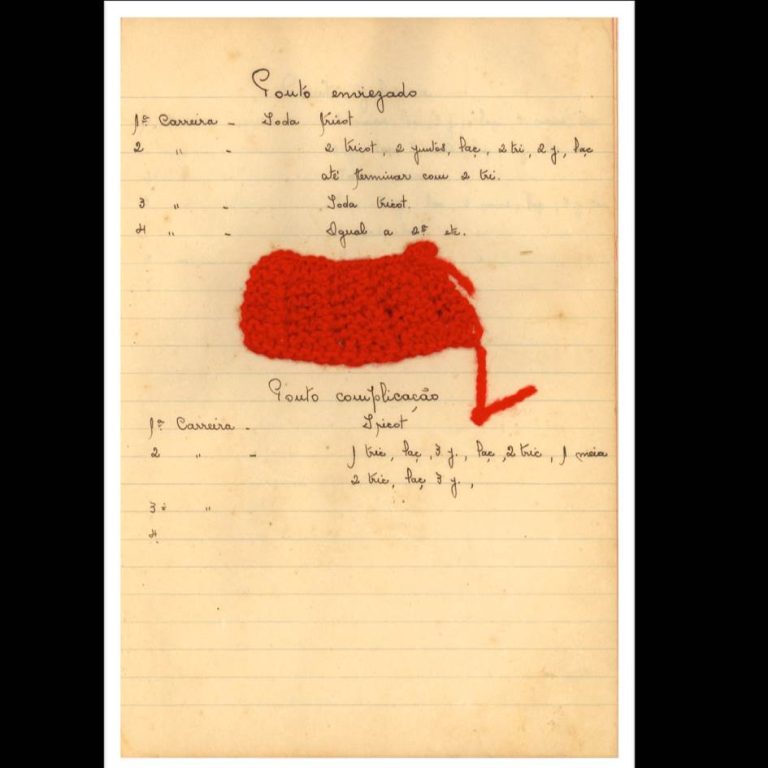 Ponto enviezado
1ª Carreira - Toda tricot
2 " - 2 tricot, 2 juntos, laç, 2 tri, 2 j, laç
até terminar com 2 tri.
3 " - Toda tricot.
4 " - Igual a 2ª etc.
Ponto complicação
1ª Carreira - Tricot
2 " - 1 tric, laç, 3 j., laç, 2 tric, 1 meia
2 tric, laç 3 j.,
3ª "
4.